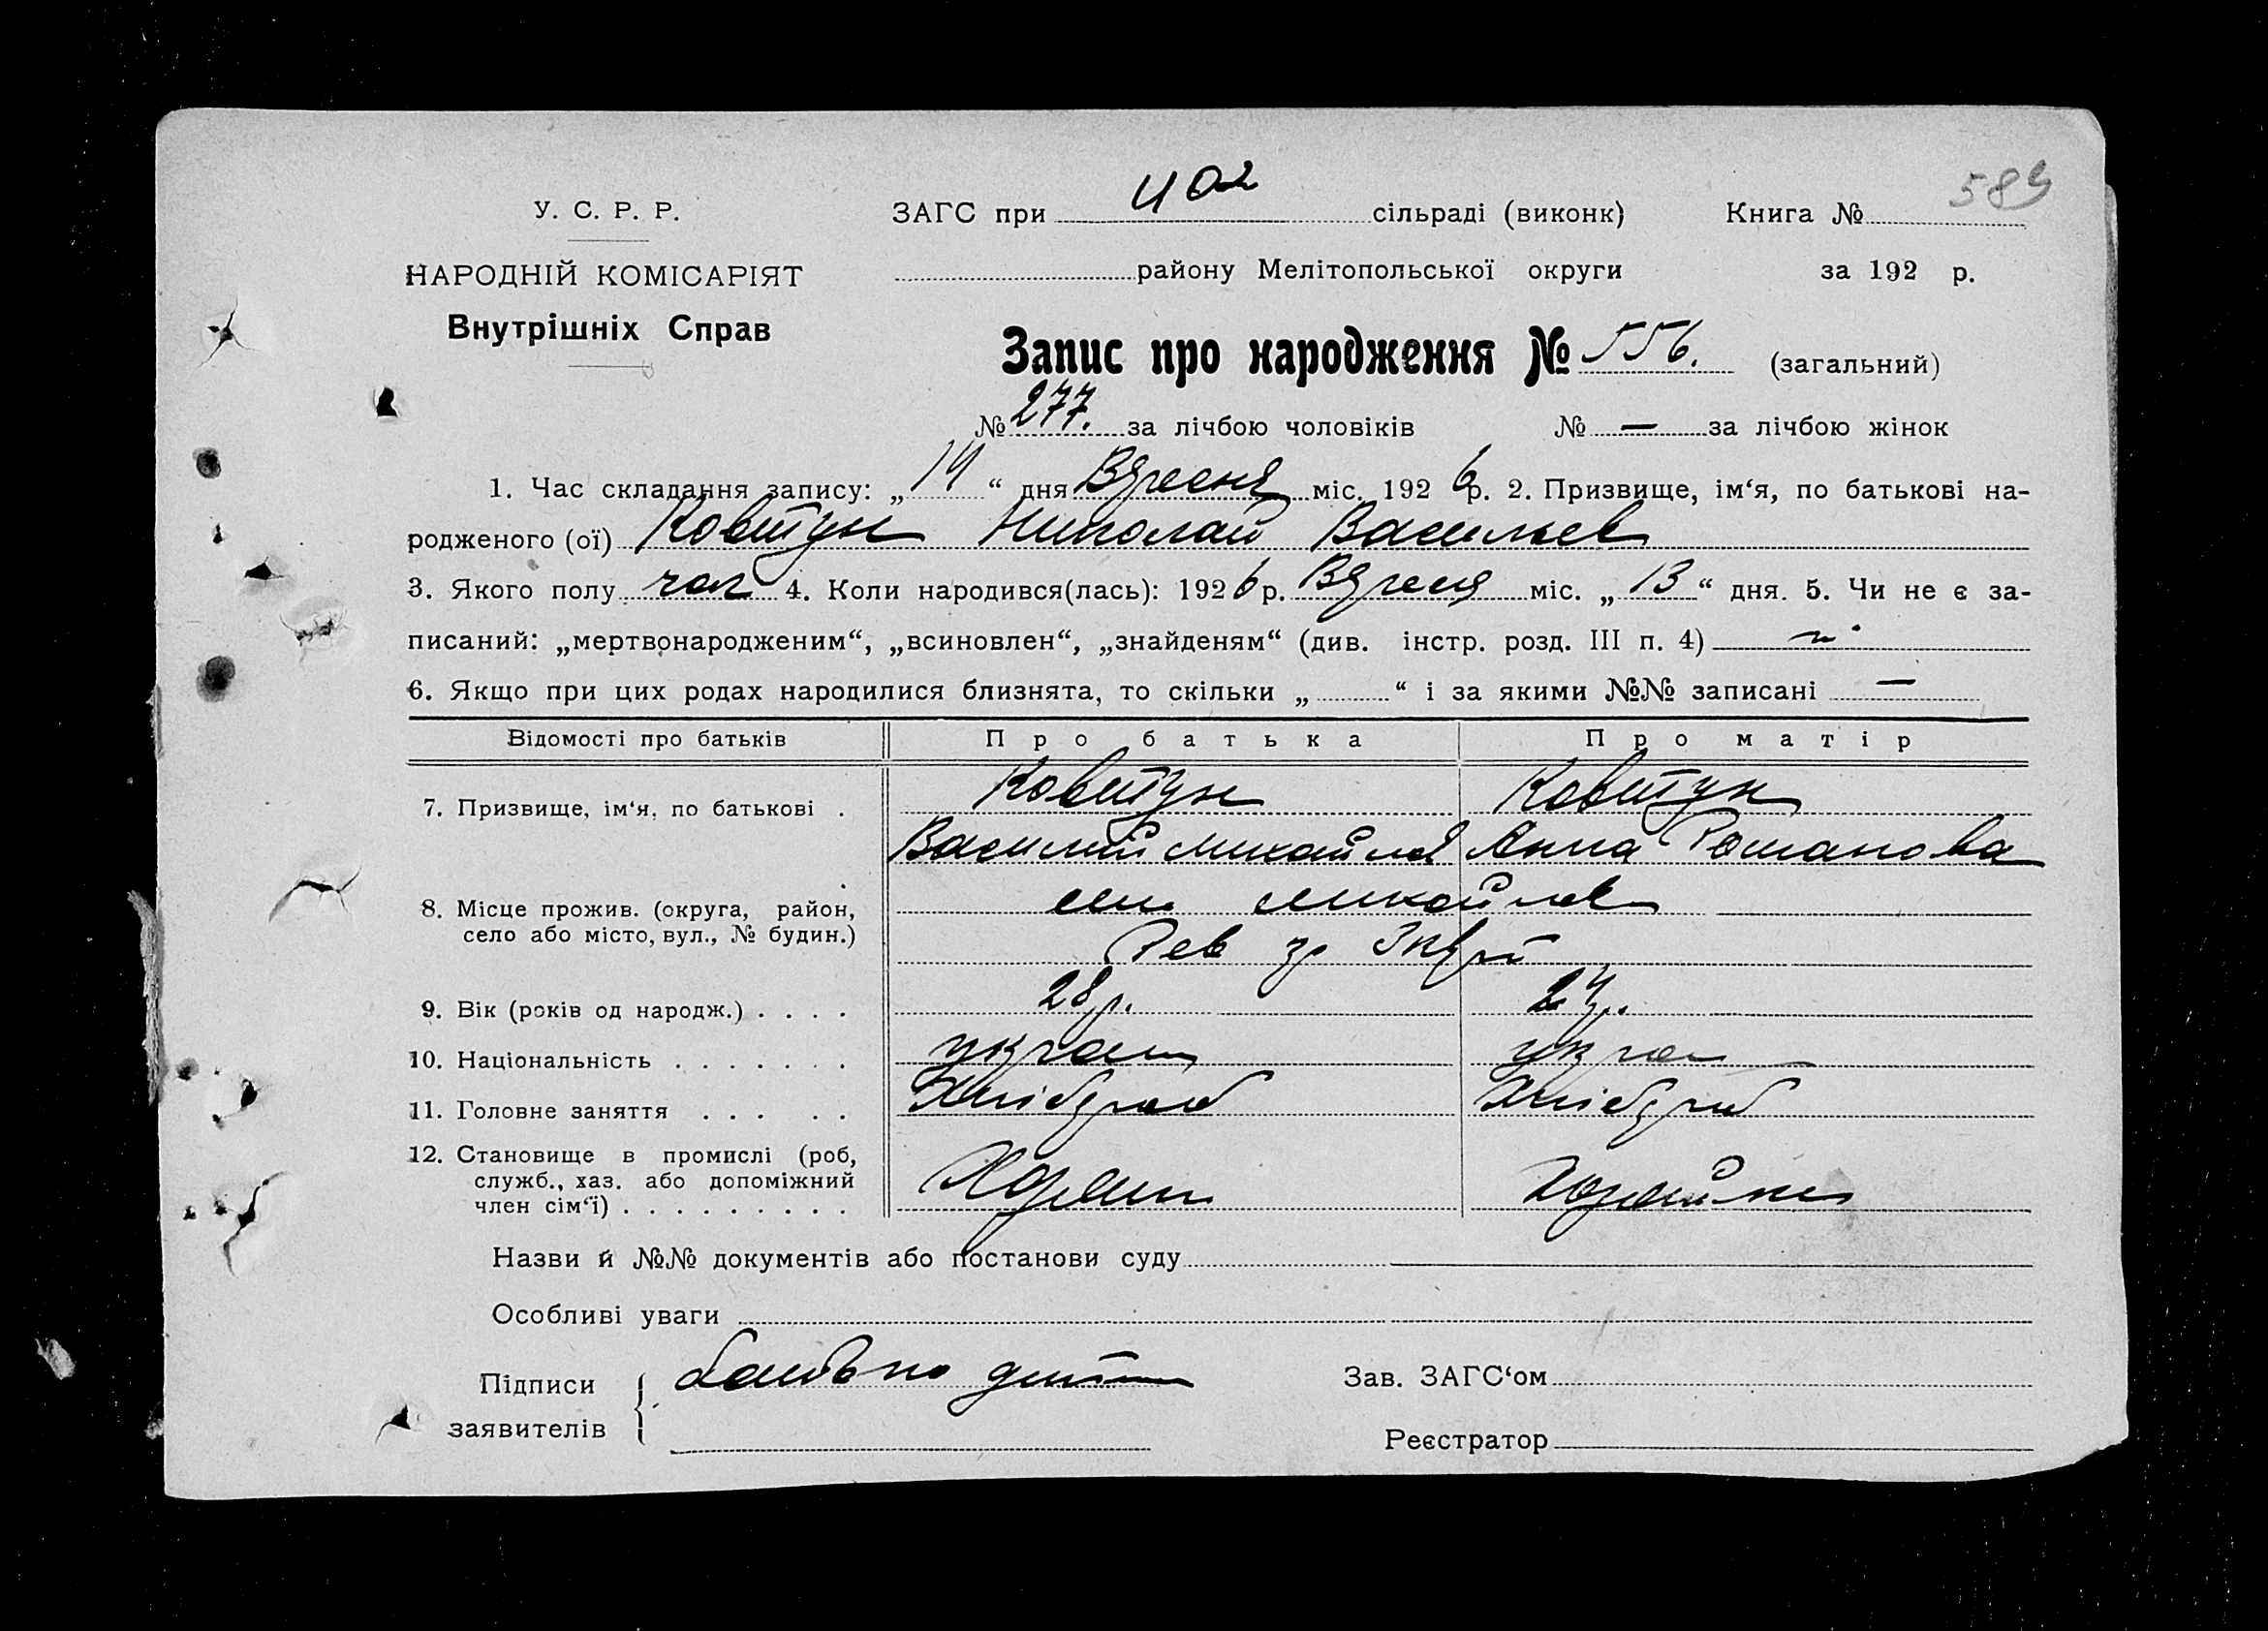 589
У. С. Р. Р.
ЗАГС при сільраді (виконк)
Книга №
НАРОДНІЙ КОМІСАРІЯТ
району Мелітопольської округи
за 192 р.
Внутрішніх Справ
Запис про народження № 556. (загальний)
№ 277. за лічбою чоловіків № — за лічбою жінок
1. Час складання запису: „ 14 “ дня Вересня міс. 192 6 р. 2. Призвище, ім‘я, по батькові на-
родженого (ої) Ковтун Николай Васильев
3. Якого полу чол 4. Коли народився(лась): 192 6 р. Вересня міс. „ 13 “ дня. 5. Чи не є за-
писаний: „мертвонародженим“, „всиновлен“, „знайденям“ (див. інстр. розд. III п. 4)
6. Якщо при цих родах народилися близнята, то скільки „ “ і за якими №№ записані —
Відомості про батьків Про батька Про матір
7. Призвище, ім‘я, по батькові . Ковтун Ковтун
Василий Михайлов Анна Романова
8. Місце прожив. (округа, район, Михайлов
село або місто, вул., № будин.)
9. Вік (років од народж.) . . . . 28 р. 24 р.
10. Національність . . . . . . . украин укра
11. Головне заняття . . . . . Хлібороб Хлібороб
12. Становище в промислі (роб,
служб., хаз. або допоміжний
член сім‘ї) . . . . . . . . .
Назви й №№ документів або постанови суду
Особливі уваги
Підписи
заявителів
батько
Зав. ЗАГС‘ом
Реєстратор